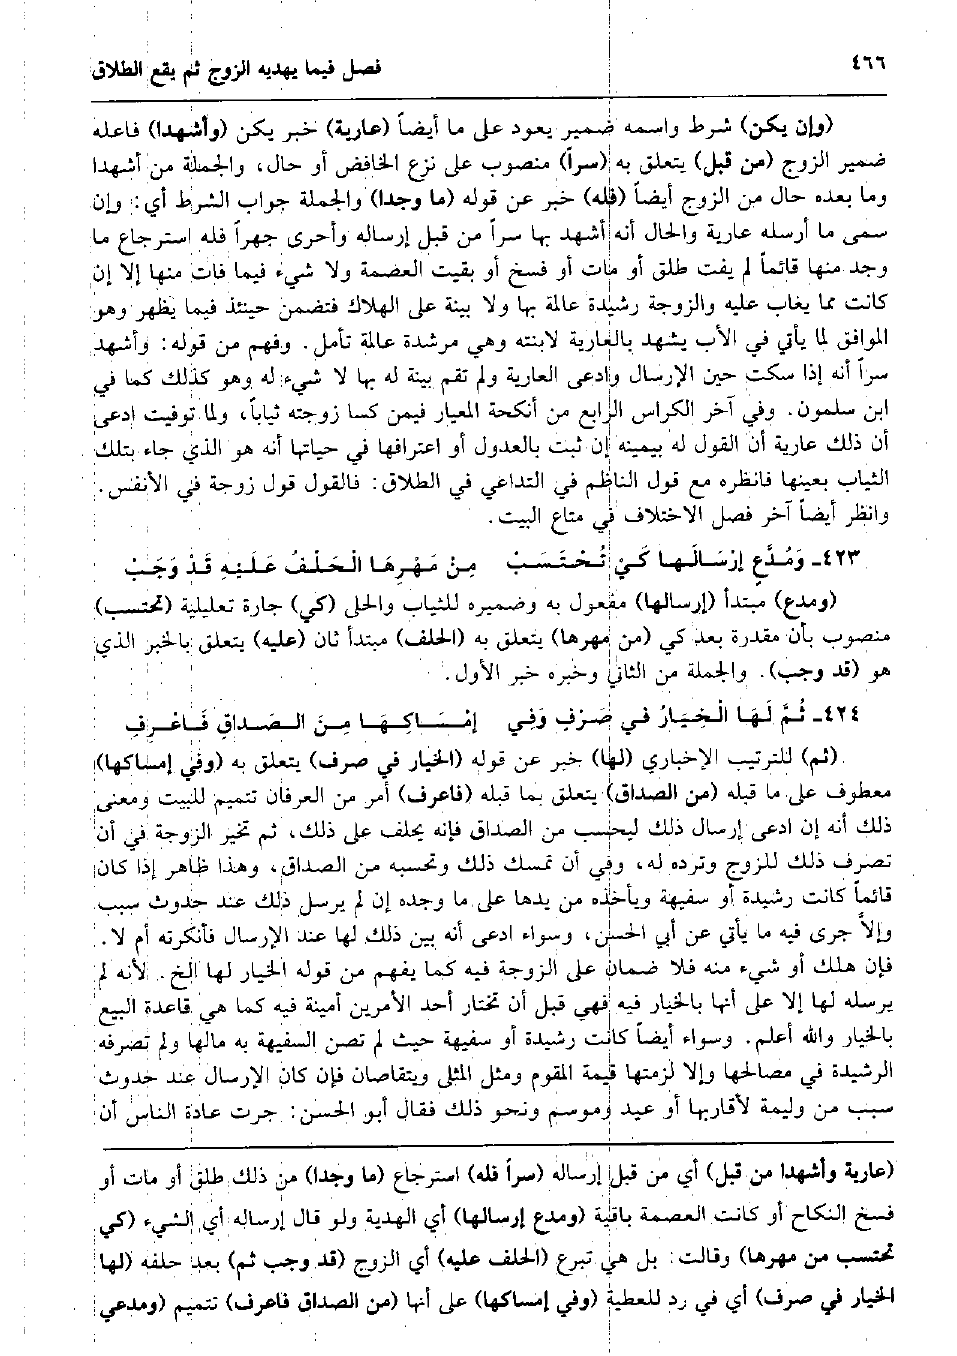 ٤٦٦ فصل فيما يهديه الزوج ثم يقع الطلاق
(وإن يكن) شرط واسمه ضمير يعود على ما أيضاً (عارية) خبر يكن (وأشهدا) فاعله
ضمير الزوج (من قبل) يتعلق به (سراً) منصوب على نزع الخافض أو حال، والجملة من أشهدا
وما بعده حال من الزوج أيضاً (فله) خبر عن قوله (ما وجدا) والجملة جواب الشرط أي: وإن
سمى ما أرسله عارية والحال أنه أشهد بها سراً من قبل إرساله وأحرى جهراً فله استرجاع ما
وجد منها قائماً لم يفت طلق أو مات أو فسخ أو بقيت العصمة ولا شيء فيما فات منها إلا إن
كانت مما يغاب عليه والزوجة رشيدة عالمة بها ولا بينة على الهلاك فتضمن حينئذ فيما يظهر وهو
الموافق لما يأتي في الأب يشهد بالعارية لابنته وهي مرشدة عالمة تأمل. وفهم من قوله: وأشهد
سراً أنه إذا سكت حين الإرسال وادعى العارية ولم تقم بينة له بها لا شيء له وهو كذلك كما في
ابن سلمون. وفي آخر الكراس الرابع من أنكحة المعيار فيمن كسا زوجته ثياباً، ولما توفيت ادعى
أن ذلك عارية أن القول له بيمينه إن ثبت بالعدول أو اعترافها في حياتها أنه هو الذي جاء بتلك
الثياب بعينها فانظره مع قول الناظم في التداعي في الطلاق: فالقول قول زوجة في الأنفس.
وانظر أيضاً آخر فصل الاختلاف في متاع البيت.
٤٢٣ـ وَمُدَّعٍ إرْسَالَهَا كَيْ تُحْتَسَبْ مِنْ مَهْرِهَا الْحَلْفُ عَلَيْهِ قَدْ وَجَبْ
(ومدع) مبتدأ (إرسالها) مفعول به وضميره للثياب والحلي (كي) جارة تعليلية (تحتسب)
منصوب بأن مقدرة بعد كي (من مهرها) يتعلق به (الحلف) مبتدأ ثان (عليه) يتعلق بالخبر الذي
هو (قد وجب). والجملة من الثاني وخبره خبر الأول.
٤٢٤ـ ثُمَّ لَهَا الْخِيَارُ في صَرْفٍ وَفِي إمْسَاكِهَا مِنَ الصَدَاقِ فَاعْرِفِ
(ثم) للترتيب الإخباري (لها) خبر عن قوله (الخيار في صرف) يتعلق به (وفي إمساكها)
معطوف على ما قبله (من الصداق) يتعلق بما قبله (فاعرف) أمر من العرفان تتميم للبيت ومعنى
ذلك أنه إن ادعى إرسال ذلك ليحسب من الصداق فإنه يحلف على ذلك، ثم تخير الزوجة في أن
تصرف ذلك للزوج وترده له، وفي أن تمسك ذلك وتحسبه من الصداق، وهذا ظاهر إذا كان
قائماً كانت رشيدة أو سفيهة ويأخذه من يدها على ما وجده إن لم يرسل ذلك عند حدوث سبب
وإلاَّ جرى فيه ما يأتي عن أبي الحسن، وسواء ادعى أنه بين ذلك لها عند الإرسال فأنكرته أم لا.
فإن هلك أو شيء منه فلا ضمان على الزوجة فيه كما يفهم من قوله الخيار لها الخ. لأنه لم
يرسله لها إلا على أنها بالخيار فيه فهي قبل أن تختار أحد الأمرين أمينة فيه كما هي قاعدة البيع
بالخيار والله أعلم. وسواء أيضاً كانت رشيدة أو سفيهة حيث لم تصن السفيهة به مالها ولم تصرفه
الرشيدة في مصالحها وإلا لزمتها قيمة المقوم ومثل المثلي ويتقاصان فإن كان الإرسال عند حدوث
سبب من وليمة لأقاربها أو عيد وموسم ونحو ذلك فقال أبو الحسن: جرت عادة الناس أن
(عارية وأشهدا من قبل) أي من قبل إرساله (سراً فله) استرجاع (ما وجدا) من ذلك طلق أو مات أو
فسخ النكاح أو كانت العصمة باقية (ومدع إرسالها) أي الهدية ولو قال إرساله أي الشيء (كي
تحتسب من مهرها) وقالت: بل هي تبرع (الحلف عليه) أي الزوج (قد وجب ثم) بعد حلفه (لها
الخيار في صرف) أي في رد للعطية (وفي إمساكها) على أنها (من الصداق فاعرف) تتميم (ومدعي